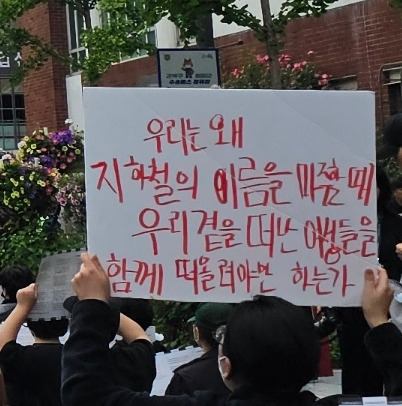 우리는 왜
지하철의 이름을 마주할 때
우리 곁을 떠난 생명들을
함께 떠올려야만 하는가